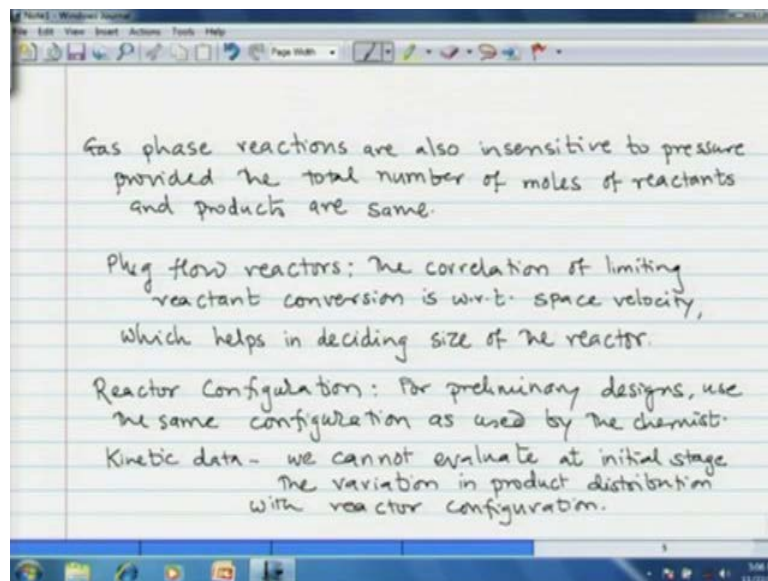 Note1 - Windows Journal
File Edit View Insert Actions Tools Help
Page Width
Gas phase reactions are also insensitive to pressure
provided the total number of moles of reactants
and products are same.
Plug flow reactors: The correlation of limiting
reactant conversion is w.r.t. space velocity,
which helps in deciding size of the reactor.
Reactor Configulation: For preliminary designs, use
the same configuration as used by the chemist.
Kinetic data - we cannot evaluate at initial stage
the variation in product distribution
with reactor configuration.
5